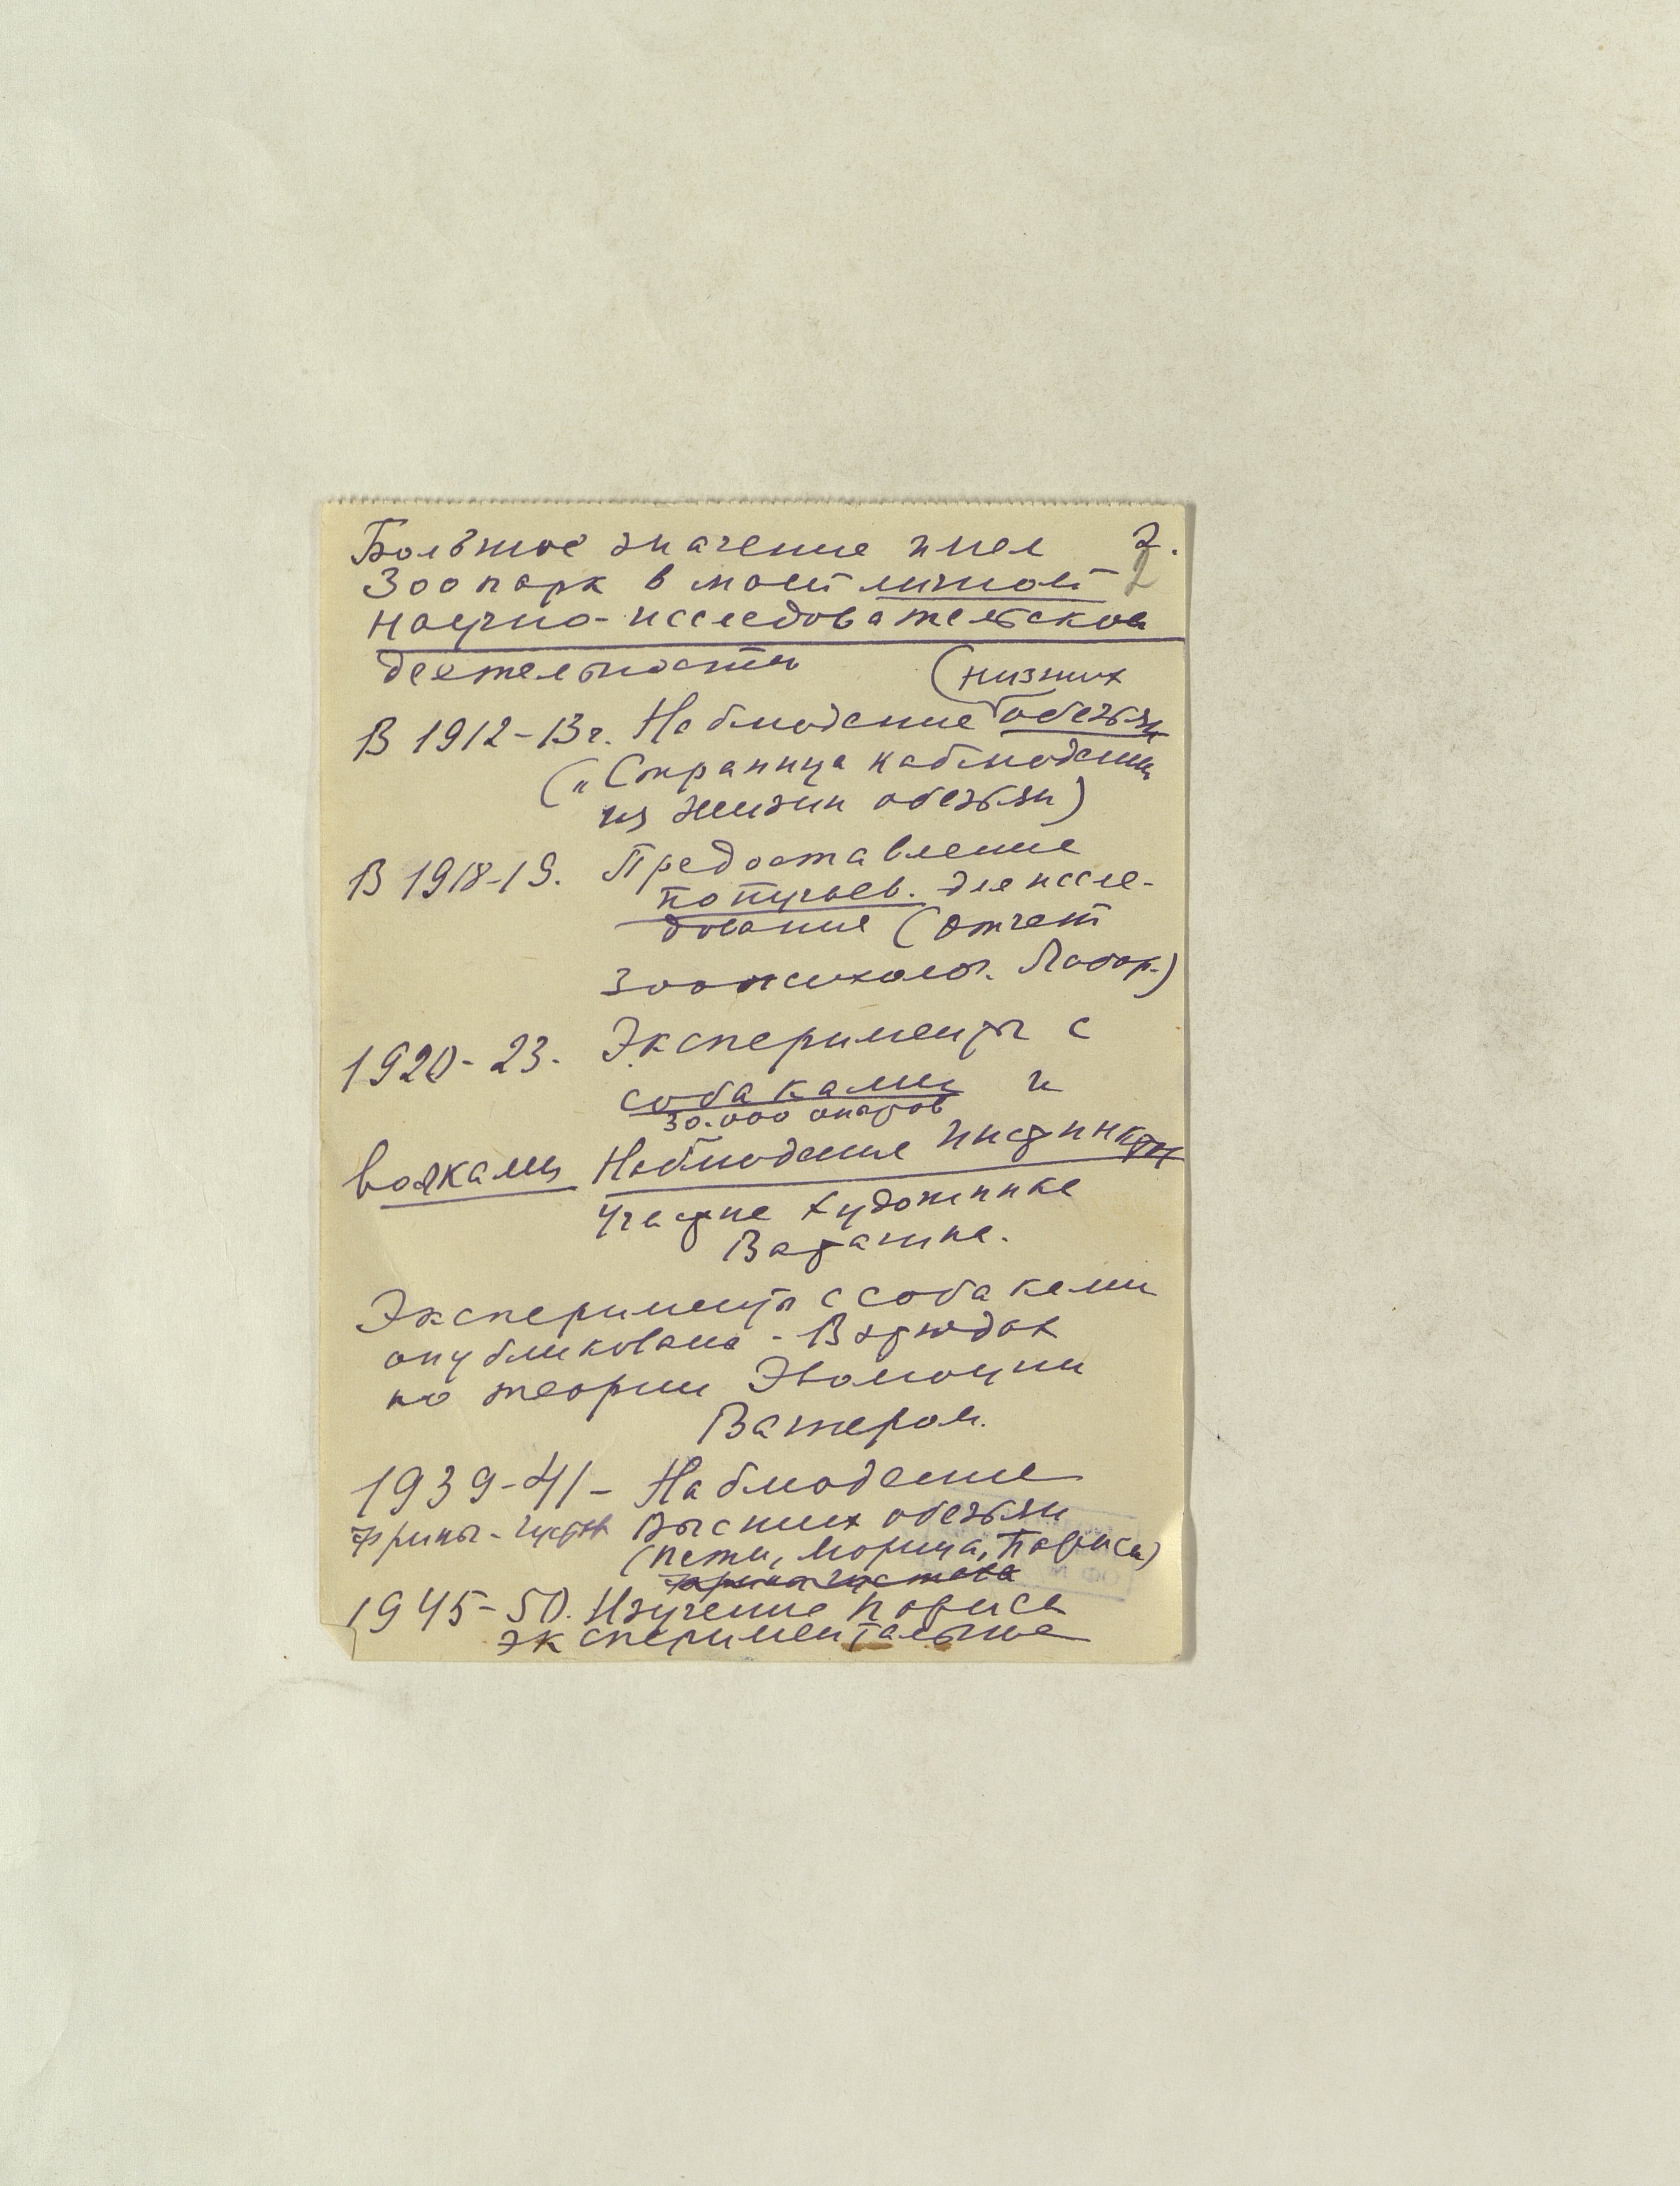 Большое значение имел 2.
Зоопарк в моей личной 2
научно-исследовательской
деятельности
(низших
В 1912-13г. Наблюдение обезьян
(„Страница наблюдений
из жизни обезьян)
В 1918-19. Предоставление
попугаев. для иссле-
дования (отчет
Зоопсихолог. Лабор.)
1920-23. Эксперименты с
собаками и
30.000 опытов
волками Наблюдение инстинктов
Участие художника
Ватагина.
Эксперименты с собаками
опубликованы - В этюдах
по теории Эволюции
Вагнером.
1939-41 - Наблюдение
Фрины - Густава Высших обезьян
(Пети, Морица, Париса)
Фрина Густава
1945-50. Изучение Париса
экспериментальное